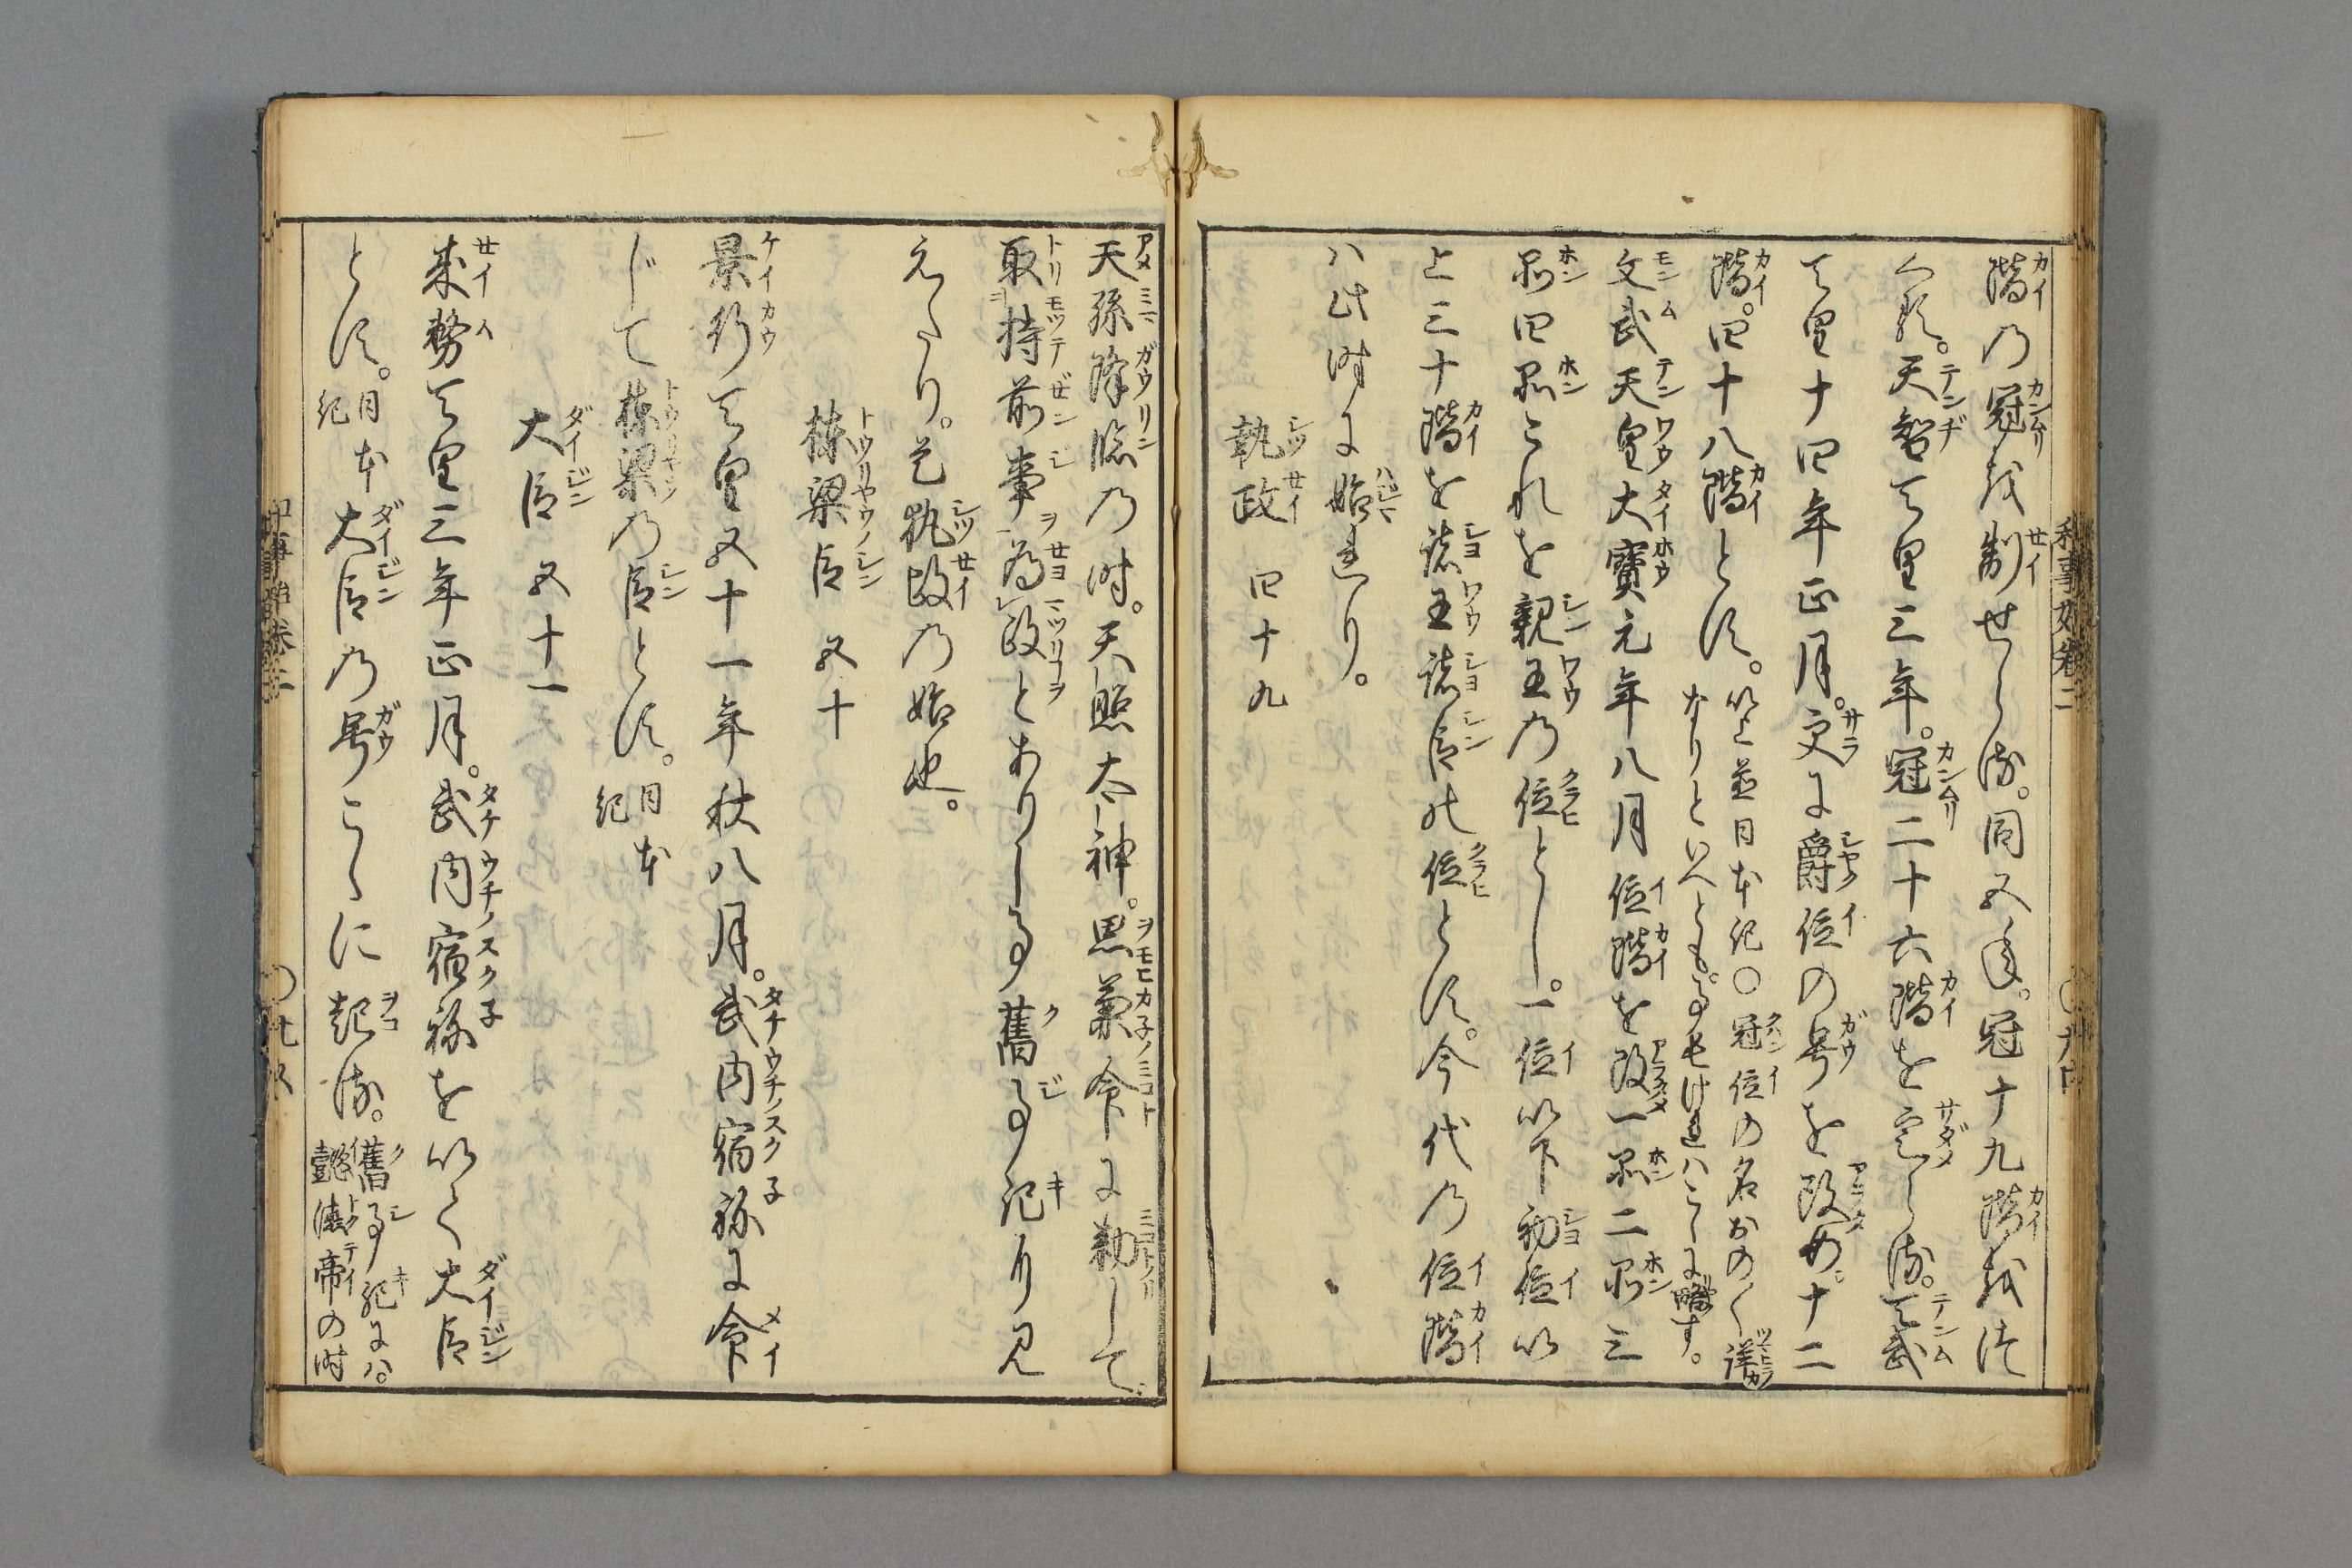 階の冠を制せらる。同五年。冠十九階をつ
くる。天智天皇三年。冠二十六階を定らる。天武
天皇十四年正月。更に爵位の号を改め。十二
階。四十八階とす。以上並日本紀○冠位の名おの〱詳か
なりといへども。事長ければこゝに略す。
文武天皇大寶元年八月位階を改一品二品三
品四品これを親王の位とし。一位以下初位以
上三十階を諸王諸臣の位とす。今代の位階
ハ此時に始まれり。
執政 四十九
天孫降臨の時。天照太神。思兼命に勅して。
取持前事為政とありし事舊事記に見
えたり。是執政の始也。
棟梁臣 五十
景行天皇五十一年秋八月。武内宿祢に命
じて棟梁の臣とす。日本紀
大臣 五十一
成務天皇三年正月。武内宿祢を以て大臣
とす。日本紀大臣の号こゝに起る。舊事紀にハ。
懿徳帝の時
和事始卷二